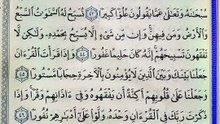 سبحنه وتعلى عما يقولون علوا كبيرا ٤٣ تسبح له السموت السبع
والأرض ومن فيهن وإن من شيء إلا يسبح بحمده ولكن لا
تفقهون تسبيحهم إنه كان حليما غفورا ٤٤ وإذا قرأت القرءان
جعلنا بينك وبين الذين لا يؤمنون بالأخرة حجابا مستورا ٤٥
وجعلنا على قلوبهم أكنة أن يفقهوه وفي ءاذانهم وقرا وإذا
ذكرت ربك في القرءان وحده ولوا على أدبرهم نفورا ٤٦